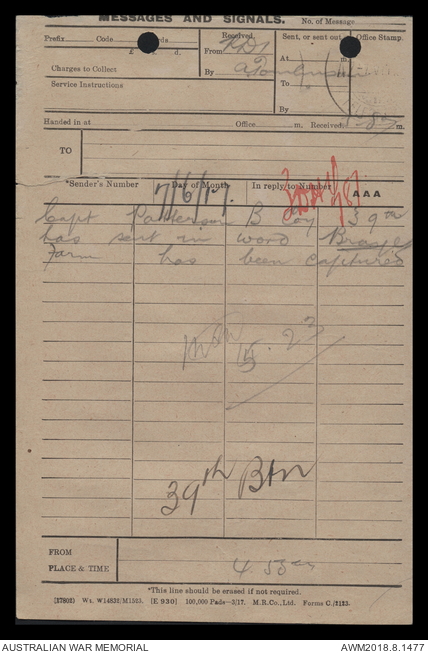 MESSAGES AND SIGNALS. No. of Message
Prefix Code Words Received. Sent, or sent out Office Stamp.
£ s. d. From At m.
Charges to Collect By To
Service Instructions By
Handed in at Office m. Received m.
TO
*Sender's Number Day of Month In reply to Number AAA
7/6/17.
Capt Patterson B Coy 39th
has sent in word Grayes
Farm has been captured
39th Btn
FROM
PLACE & TIME
4.58am
*This line should be erased if not required.
(27802) Wt. W14832/M1523. [E 930] 100,000 Pads—3/17. M.R.Co.,Ltd. Forms C./2123.
AUSTRALIAN WAR MEMORIAL AWM2018.8.1477